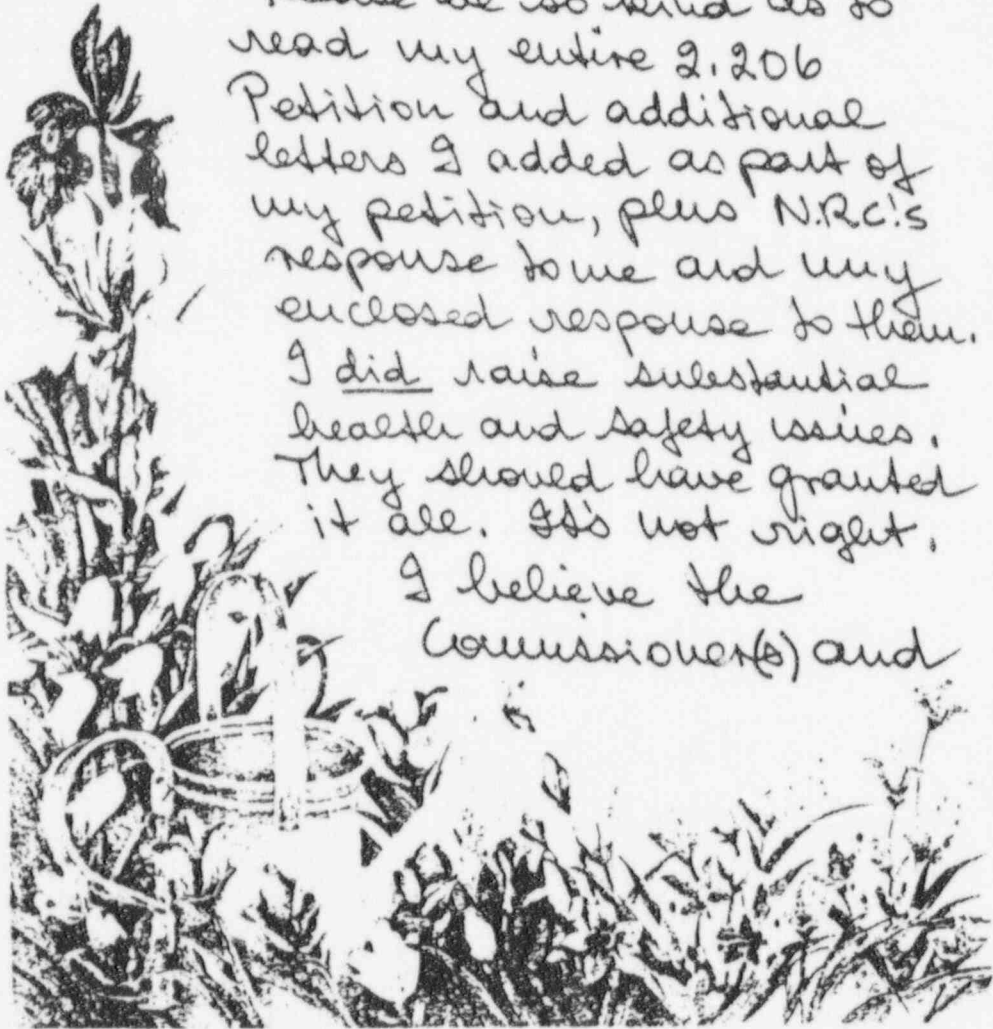 Please be so kind as to
read my entire 2.206
Petition and additional
letters I added as part of
my petition, plus N.R.C.'s
response to me and my
enclosed response to them.
I did raise substantial
health and safety issues.
They should have granted
it all. It's not right.
I believe the
Commissioner(s) and